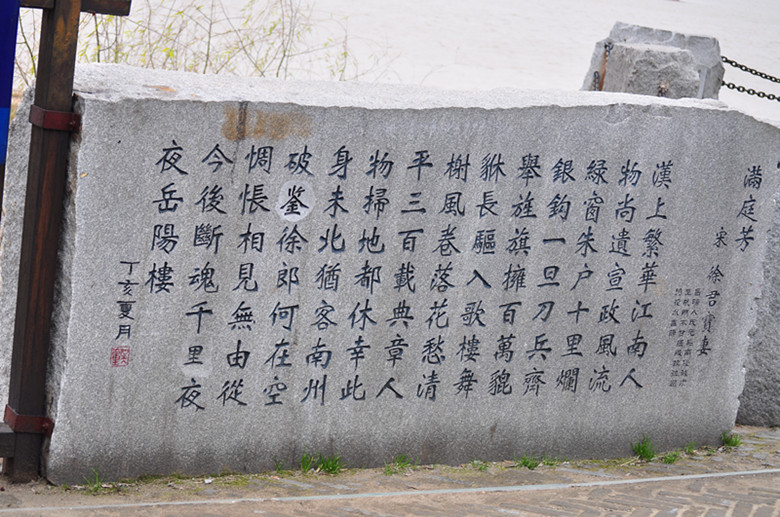 滿庭芳
宋 徐君寶妻
漢上繁華江南人
物尚遺宣政風流
綠窗朱户十里爛
銀鉤一旦刀兵齊
舉旌旗擁百萬貔
貅長驅入歌樓舞
榭風卷落花愁清
平三百載典章人
物掃地都休幸此
身未北猶客南州
破鉴徐郎何在空
惆悵相見無由從
今後斷魂千里夜
夜岳陽樓
丁亥夏月